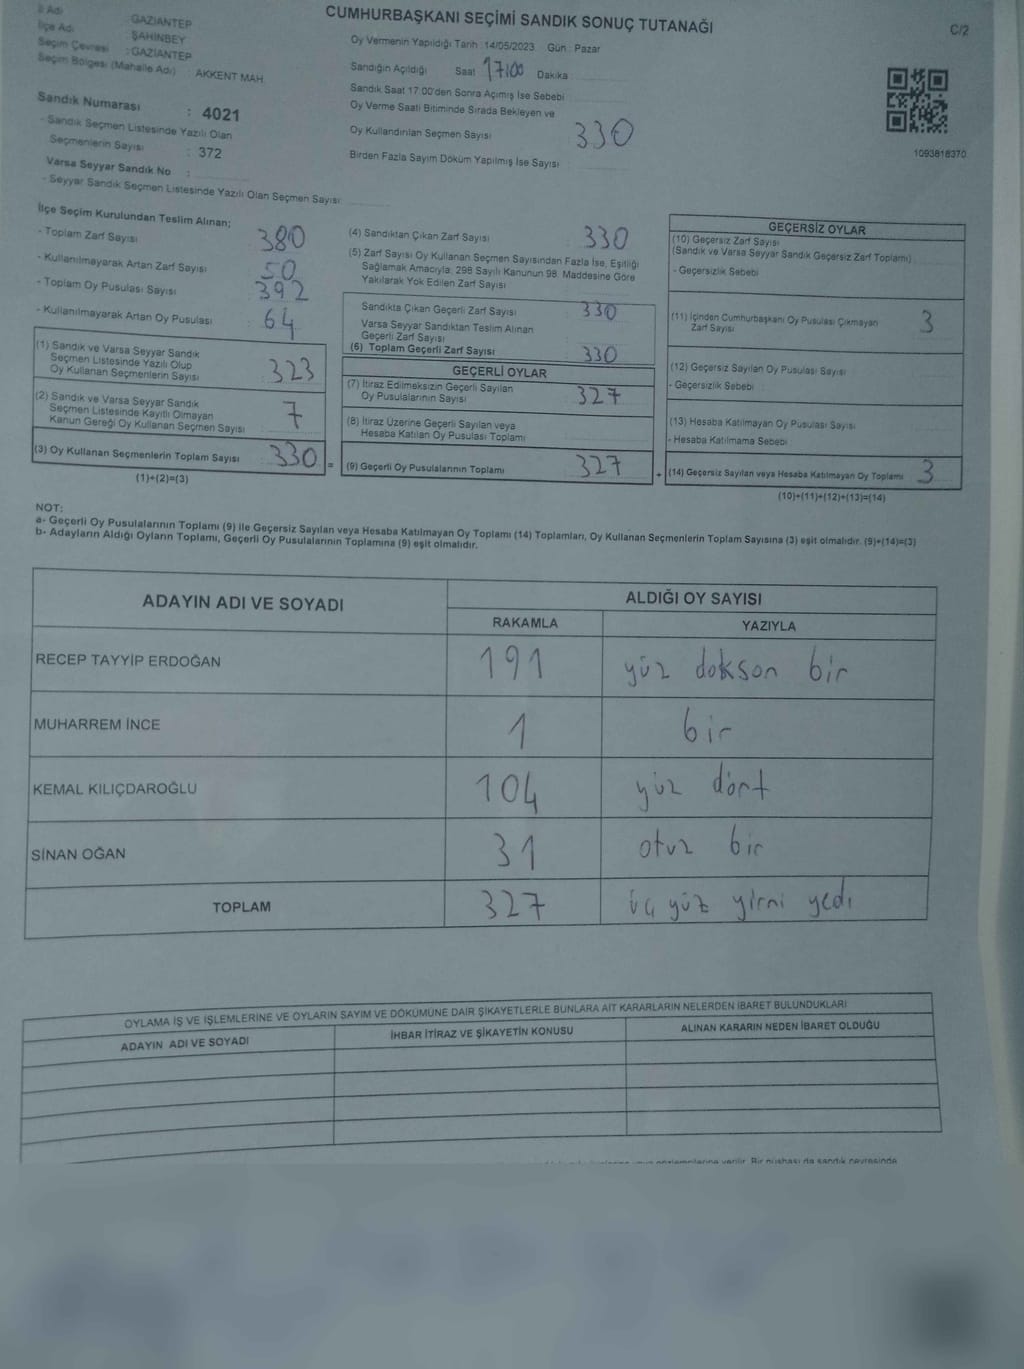 CUMHURBAŞKANI SEÇİMİ SANDIK SONUÇ TUTANAĞI
C/2
İl Adı : GAZİANTEP
İlçe Adı : ŞAHİNBEY
Seçim Çevresi : GAZİANTEP
Seçim Bölgesi (Mahalle Adı) : AKKENT MAH.
Sandık Numarası : 4021
- Sandık Seçmen Listesinde Yazılı Olan
Seçmenlerin Sayısı : 372
Varsa Seyyar Sandık No :
- Seyyar Sandık Seçmen Listesinde Yazılı Olan Seçmen Sayısı:
Oy Vermenin Yapıldığı Tarih : 14/05/2023 Gün : Pazar
Sandığın Açıldığı Saat 17:00 Dakika
Sandık Saat 17:00'den Sonra Açımış İse Sebebi
Oy Verme Saati Bitiminde Sırada Bekleyen ve
Oy Kullandırılan Seçmen Sayısı 330
Birden Fazla Sayım Döküm Yapılmış İse Sayısı
1093818370
İlçe Seçim Kurulundan Teslim Alınan;
- Toplam Zarf Sayısı : 380
- Kullanılmayarak Artan Zarf Sayısı : 50
- Toplam Oy Pusulası Sayısı : 392
- Kullanılmayarak Artan Oy Pusulası : 64
(1) Sandık ve Varsa Seyyar Sandık
Seçmen Listesinde Yazılı Olup
Oy Kullanan Seçmenlerin Sayısı : 323
(2) Sandık ve Varsa Seyyar Sandık
Seçmen Listesinde Kayıtlı Olmayan
Kanun Gereği Oy Kullanan Seçmen Sayısı : 7
(3) Oy Kullanan Seçmenlerin Toplam Sayısı : 330 =
(1)+(2)=(3)
(4) Sandıktan Çıkan Zarf Sayısı : 330
(5) Zarf Sayısı Oy Kullanan Seçmen Sayısından Fazla İse, Eşitliği
Sağlamak Amacıyla, 298 Sayılı Kanunun 98. Maddesine Göre
Yakılarak Yok Edilen Zarf Sayısı
Sandıkta Çıkan Geçerli Zarf Sayısı : 330
Varsa Seyyar Sandıktan Teslim Alınan
Geçerli Zarf Sayısı
(6) Toplam Geçerli Zarf Sayısı : 330
GEÇERLİ OYLAR
(7) İtiraz Edilmeksizin Geçerli Sayılan
Oy Pusulalarının Sayısı : 327
(8) İtiraz Üzerine Geçerli Sayılan veya
Hesaba Katılan Oy Pusulası Toplamı
(9) Geçerli Oy Pusulalarının Toplamı : 327 +
GEÇERSİZ OYLAR
(10) Geçersiz Zarf Sayısı
(Sandık ve Varsa Seyyar Sandık Geçersiz Zarf Toplamı)
- Geçersizlik Sebebi
(11) İçinden Cumhurbaşkanı Oy Pusulası Çıkmayan
Zarf Sayısı 3
(12) Geçersiz Sayılan Oy Pusulası Sayısı
- Geçersizlik Sebebi
(13) Hesaba Katılmayan Oy Pusulası Sayısı
- Hesaba Katılmama Sebebi
(14) Geçersiz Sayılan veya Hesaba Katılmayan Oy Toplamı 3
(10)+(11)+(12)+(13)=(14)
NOT:
a- Geçerli Oy Pusulalarının Toplamı (9) ile Geçersiz Sayılan veya Hesaba Katılmayan Oy Toplamı (14) Toplamları, Oy Kullanan Seçmenlerin Toplam Sayısına (3) eşit olmalıdır. (9)+(14)=(3)
b- Adayların Aldığı Oyların Toplamı, Geçerli Oy Pusulalarının Toplamına (9) eşit olmalıdır.
ADAYIN ADI VE SOYADI ALDIĞI OY SAYISI
RAKAMLA YAZIYLA
RECEP TAYYİP ERDOĞAN 191 yüz dokson bir
MUHARREM İNCE 1 bir
KEMAL KILIÇDAROĞLU 104 yüz dört
SİNAN OĞAN 31 otuz bir
TOPLAM 327 üç yüz yirmi yedi
OYLAMA İŞ VE İŞLEMLERİNE VE OYLARIN SAYIM VE DÖKÜMÜNE DAİR ŞİKAYETLERLE BUNLARA AİT KARARLARIN NELERDEN İBARET BULUNDUKLARI
ADAYIN ADI VE SOYADI İHBAR İTİRAZ VE ŞİKAYETİN KONUSU ALINAN KARARIN NEDEN İBARET OLDUĞU
verilir. Bir nüshası da sandık çevresinde